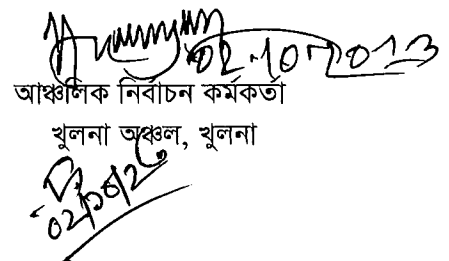 02.10.2013
আঞ্চলিক নির্বাচন কর্মকর্তা
খুলনা অঞ্চল, খুলনা